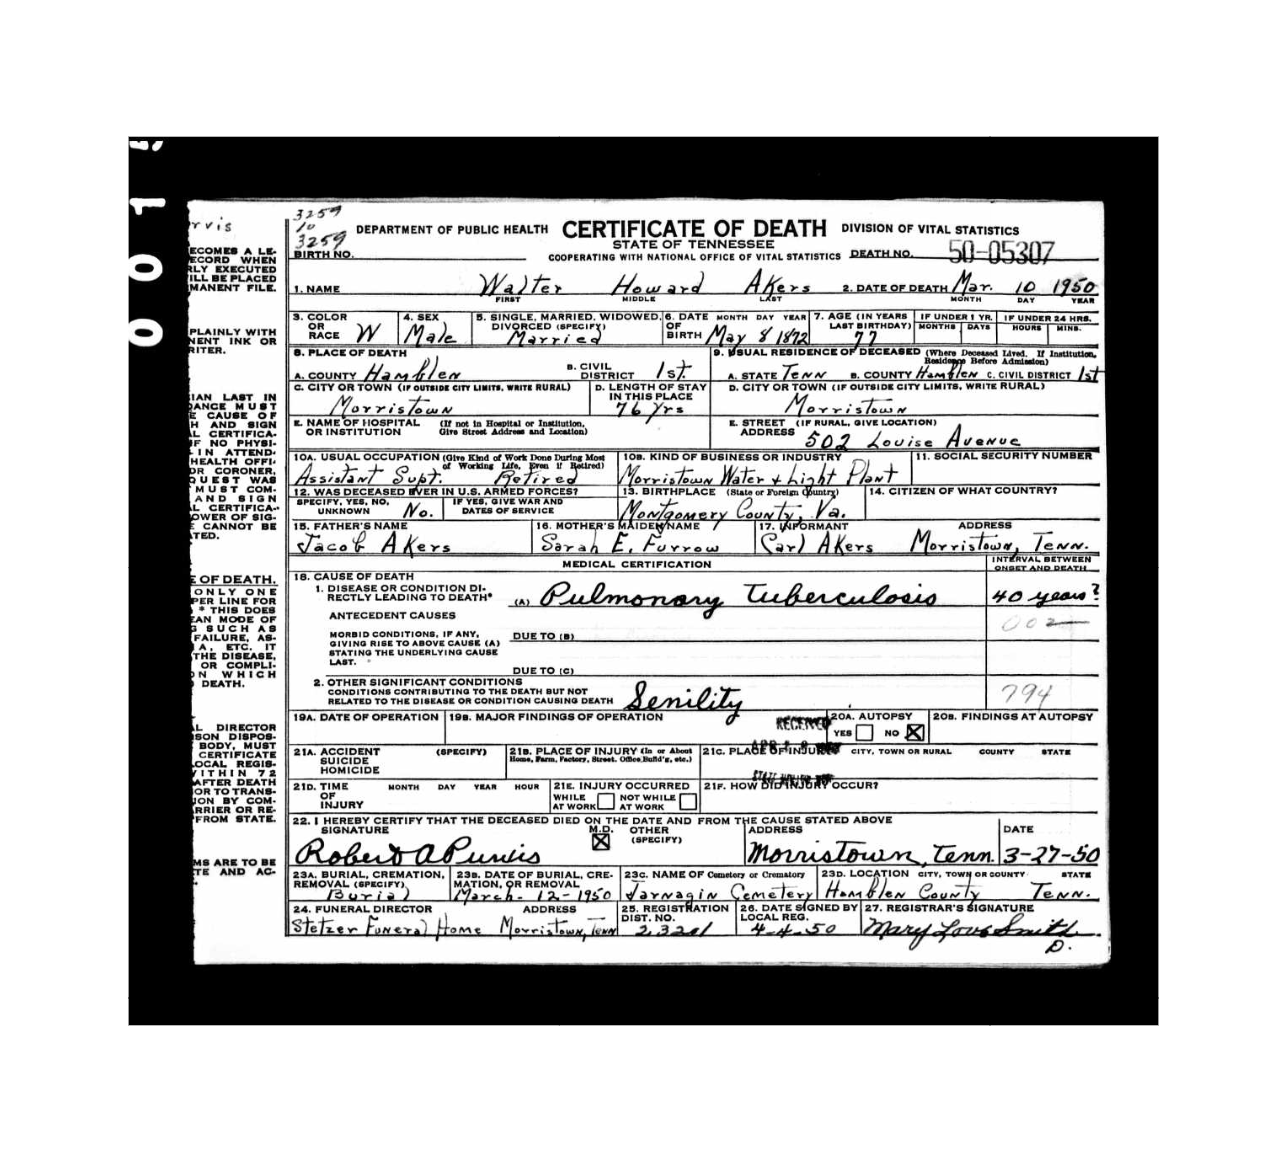 0015
rvis
ECOMES A LE-
ECORD WHEN
RLY EXECUTED
ILL BE PLACED
MANENT FILE.
PLAINLY WITH
NENT INK OR
RITER.
IAN LAST IN
DANCE MUST
E CAUSE OF
H AND SIGN
AL CERTIFICA-
IF NO PHYSI-
IN ATTEND-
HEALTH OFFI-
OR CORONER,
QUEST WAS
MUST COM-
AND SIGN
AL CERTIFICA-
OWER OF SIG-
E CANNOT BE
TED.
E OF DEATH.
ONLY ONE
PER LINE FOR
* THIS DOES
EAN MODE OF
G SUCH AS
FAILURE, AS-
IA, ETC. IT
THE DISEASE,
OR COMPLI-
ON WHICH
DEATH.
L DIRECTOR
SON DISPOS-
BODY, MUST
CERTIFICATE
OCAL REGIS-
WITHIN 72
AFTER DEATH
OR TO TRANS-
ION BY COM-
RRIER OR RE-
FROM STATE.
MS ARE TO BE
TE AND AC-
3259
10
3259
DEPARTMENT OF PUBLIC HEALTH CERTIFICATE OF DEATH DIVISION OF VITAL STATISTICS
STATE OF TENNESSEE
BIRTH NO. COOPERATING WITH NATIONAL OFFICE OF VITAL STATISTICS DEATH NO. 50-05307
1. NAME Walter Howard Akers 2. DATE OF DEATH Mar. 10 1950
FIRST MIDDLE LAST MONTH DAY YEAR
3. COLOR OR RACE W 4. SEX Male 5. SINGLE, MARRIED, WIDOWED, DIVORCED (SPECIFY) Married 6. DATE OF BIRTH MONTH DAY YEAR May 8 1872 7. AGE (IN YEARS LAST BIRTHDAY) 77 IF UNDER 1 YR. MONTHS DAYS IF UNDER 24 HRS. HOURS MINS.
8. PLACE OF DEATH 9. USUAL RESIDENCE OF DECEASED (Where Deceased Lived. If Institution, Residence Before Admission)
A. COUNTY Hamblen B. CIVIL DISTRICT 1st. A. STATE Tenn B. COUNTY Hamblen C. CIVIL DISTRICT 1st
C. CITY OR TOWN (IF OUTSIDE CITY LIMITS, WRITE RURAL) Morristown D. LENGTH OF STAY IN THIS PLACE 76 yrs D. CITY OR TOWN (IF OUTSIDE CITY LIMITS, WRITE RURAL) Morristown
E. NAME OF HOSPITAL OR INSTITUTION (If not in Hospital or Institution, Give Street Address and Location) E. STREET ADDRESS (IF RURAL, GIVE LOCATION) 502 Louise Avenue
10A. USUAL OCCUPATION (Give Kind of Work Done During Most of Working Life, Even if Retired) Assistant Supt. Retired 10B. KIND OF BUSINESS OR INDUSTRY Morristown Water + Light Plant 11. SOCIAL SECURITY NUMBER
12. WAS DECEASED EVER IN U.S. ARMED FORCES? SPECIFY, YES, NO, UNKNOWN No. IF YES, GIVE WAR AND DATES OF SERVICE 13. BIRTHPLACE (State or Foreign Country) Montgomery County, Va. 14. CITIZEN OF WHAT COUNTRY?
15. FATHER'S NAME Jacob Akers 16. MOTHER'S MAIDEN NAME Sarah E. Furrow 17. INFORMANT Carl Akers ADDRESS Morristown, Tenn.
MEDICAL CERTIFICATION INTERVAL BETWEEN ONSET AND DEATH
18. CAUSE OF DEATH
1. DISEASE OR CONDITION DIRECTLY LEADING TO DEATH* (A) Pulmonary Tuberculosis 40 years?
ANTECEDENT CAUSES 002
MORBID CONDITIONS, IF ANY, GIVING RISE TO ABOVE CAUSE (A) STATING THE UNDERLYING CAUSE LAST. DUE TO (B)
DUE TO (C)
2. OTHER SIGNIFICANT CONDITIONS
CONDITIONS CONTRIBUTING TO THE DEATH BUT NOT RELATED TO THE DISEASE OR CONDITION CAUSING DEATH Senility 794
19A. DATE OF OPERATION 19B. MAJOR FINDINGS OF OPERATION RECEIVED 20A. AUTOPSY YES NO 20B. FINDINGS AT AUTOPSY
21A. ACCIDENT SUICIDE HOMICIDE (SPECIFY) 21B. PLACE OF INJURY (In or About Home, Farm, Factory, Street, Office Build'g, etc.) 21C. PLACE OF INJURY CITY, TOWN OR RURAL COUNTY STATE
21D. TIME OF INJURY MONTH DAY YEAR HOUR 21E. INJURY OCCURRED WHILE AT WORK NOT WHILE AT WORK 21F. HOW DID INJURY OCCUR?
22. I HEREBY CERTIFY THAT THE DECEASED DIED ON THE DATE AND FROM THE CAUSE STATED ABOVE
SIGNATURE M.D. OTHER (SPECIFY) ADDRESS DATE
Robert A Purvis Morristown, Tenn. 3-27-50
23A. BURIAL, CREMATION, REMOVAL (SPECIFY) Burial 23B. DATE OF BURIAL, CREMATION, OR REMOVAL March-12-1950 23C. NAME OF Cemetery or Crematory Jarnagin Cemetery 23D. LOCATION CITY, TOWN OR COUNTY STATE Hamblen County Tenn.
24. FUNERAL DIRECTOR ADDRESS Stetzer Funeral Home Morristown, Tenn 25. REGISTRATION DIST. NO. 23201 26. DATE SIGNED BY LOCAL REG. 4-4-50 27. REGISTRAR'S SIGNATURE Mary Love Smith
D.